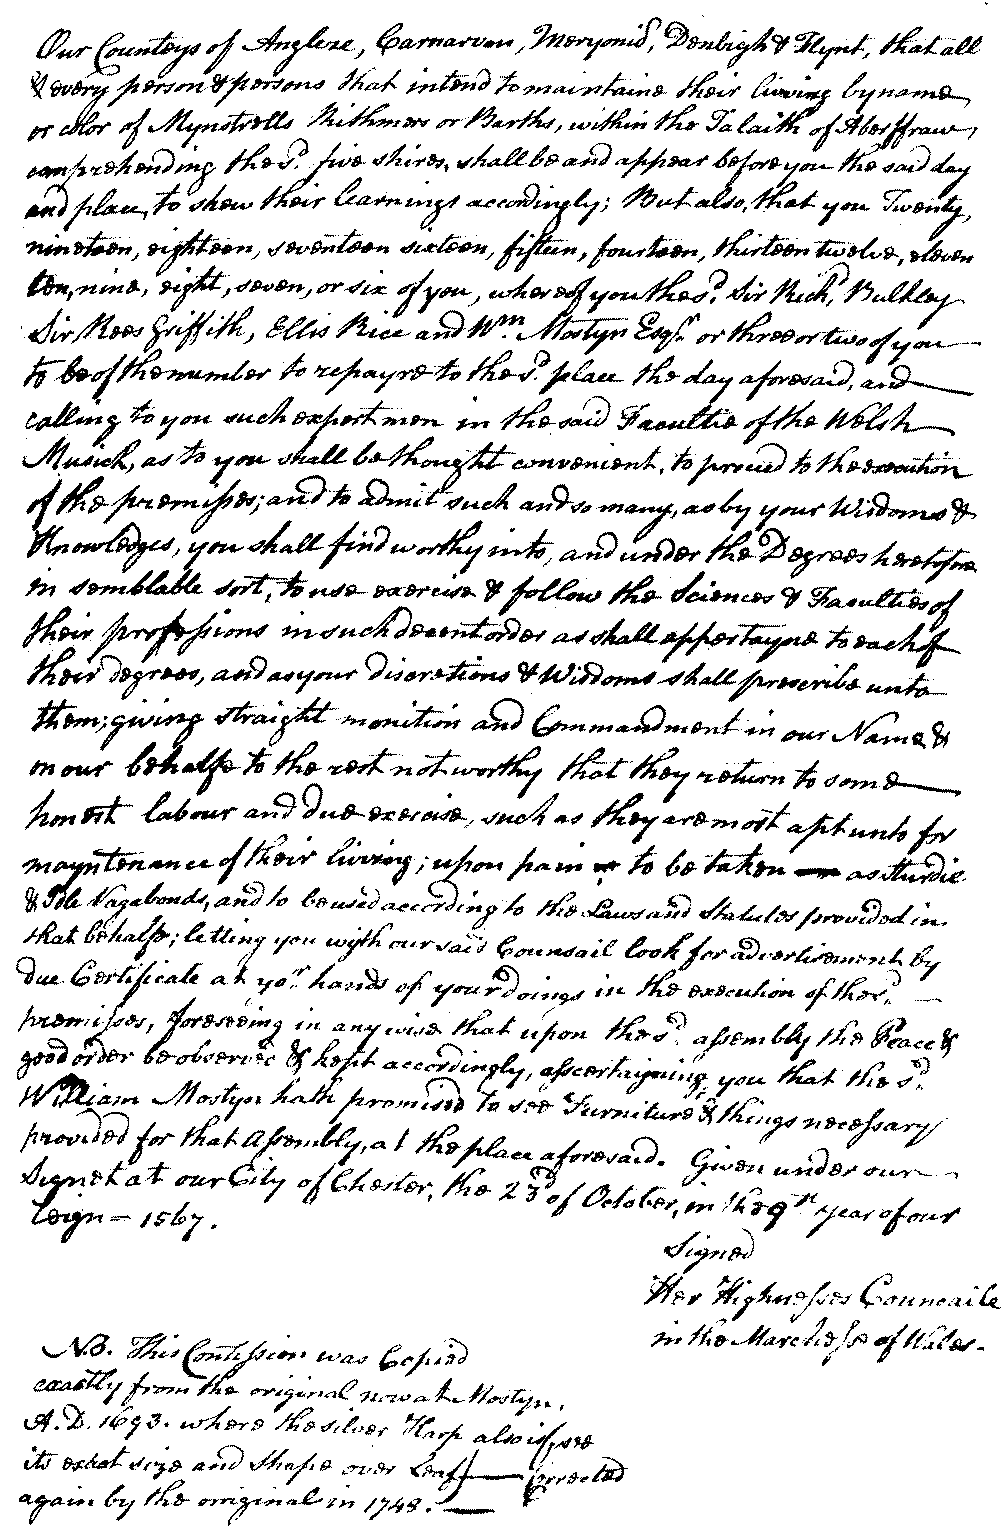 Our Counteys of Anglexe, Carnarvan, Meryonid, Denbigh & Flynt, that all
& every person & persons that intend to maintaine their living by name
or color of Mynstrells Rithmers or Barths, within the Talaith of Aberffraw,
comprehending the sd. five shires, shall be and appear before you the said day
and place, to shew their learnings accordingly; But also, that you Twenty,
nineteen, eighteen, seventeen sixteen, fifteen, fourteen, thirteen twelve, eleven
ten, nine, eight, seven, or six of you, whereof you the sd. Sir Richd. Bulkley
Sir Rees Griffith, Ellis Rice and Wm. Mostyn Esqr. or three or two of you
to be of the number to repayre to the sd. place the day aforesaid, and
calling to you such expert men in the said Facultie of the Welsh
Musick, as to you shall be thought convenient, to proceed to the execution
of the premisses; and to admit such and so many, as by your Wisdoms &
Knowledges, you shall find worthy into, and under the Degrees heretofore
in semblable sort, to use exercise & follow the Sciences & Faculties of
their professions in such decent order as shall appertayne to each of
their degrees, and as your discretions & Wisdoms shall prescribe unto
them; giving straight monition and Commandment in our Name &
on our behalfe to the rest not worthy that they return to some
honest labour and due exercise, such as they are most apt unto for
mayntenance of their living; upon pain to be taken as sturdie
& Idle Vagabonds, and to be used according to the Laws and Statutes provided in
that behalfe; letting you wyth our said Counsail look for advertisement by
due Certificate at yor. hands of your doings in the execution of the sd.
premisses, foreseeing in any wise that upon the sd. assembly the Peace &
good order be observed & kept accordingly, asscertaigning you that the sd.
William Mostyn hath promised to see Furniture & things necessary
provided for that Assembly, at the place aforesaid. Given under our
Signet at our City of Chester, the 23d of October, in the 9th year of our
Reign - 1567.
Signed
Her Highnesses Councaile
in the Marchesse of Wales.
NB. This Comission was Copied
exactly from the original now at Mostyn,
A.D. 1693. where the silver Harp also is, see
its exact size and shape over Leaf Corrected
again by the original in 1748.